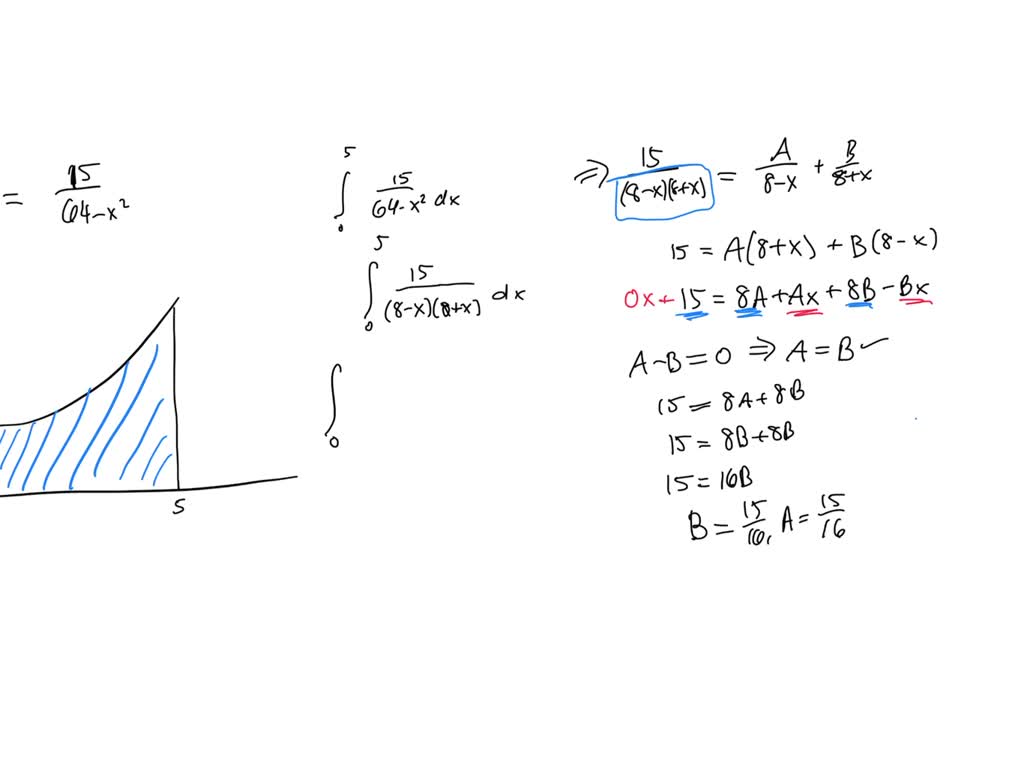 = 15/(64-x²)
5
∫₀⁵ 15/(64-x²) dx
∫₀⁵ 15/((8-x)(8+x)) dx
∫₀
⇒ 15/((8-x)(8+x)) = A/(8-x) + B/(8+x)
15 = A(8+x) + B(8-x)
0x+15 = 8A+Ax+8B-Bx
A-B=0 ⇒ A=B✓
15=8A+8B
15=8B+8B
15=16B
B=15/16, A=15/16